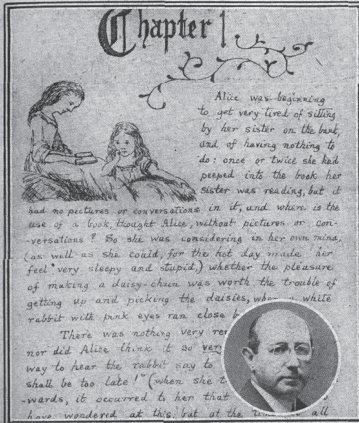 Chapter 1
Alice was beginning
to get very tired of sitting
by her sister on the bank,
and of having nothing to
do: once or twice she had
peeped into the book her
sister was reading, but it
had no pictures or conversations in it, and where is the
use of a book, thought Alice, without pictures or con-
-versations? So she was considering in her own mind,
(as well as she could, for the hot day made her
feel very sleepy and stupid,) whether the pleasure
of making a daisy-chain was worth the trouble of
getting up and picking the daisies, when a white
rabbit with pink eyes ran close b
There was nothing very rem
nor did Alice think it so very
way to hear the rabbit say to
shall be too late!" (when she t
-wards, it occurred to her that
have wondered at this, but at the all